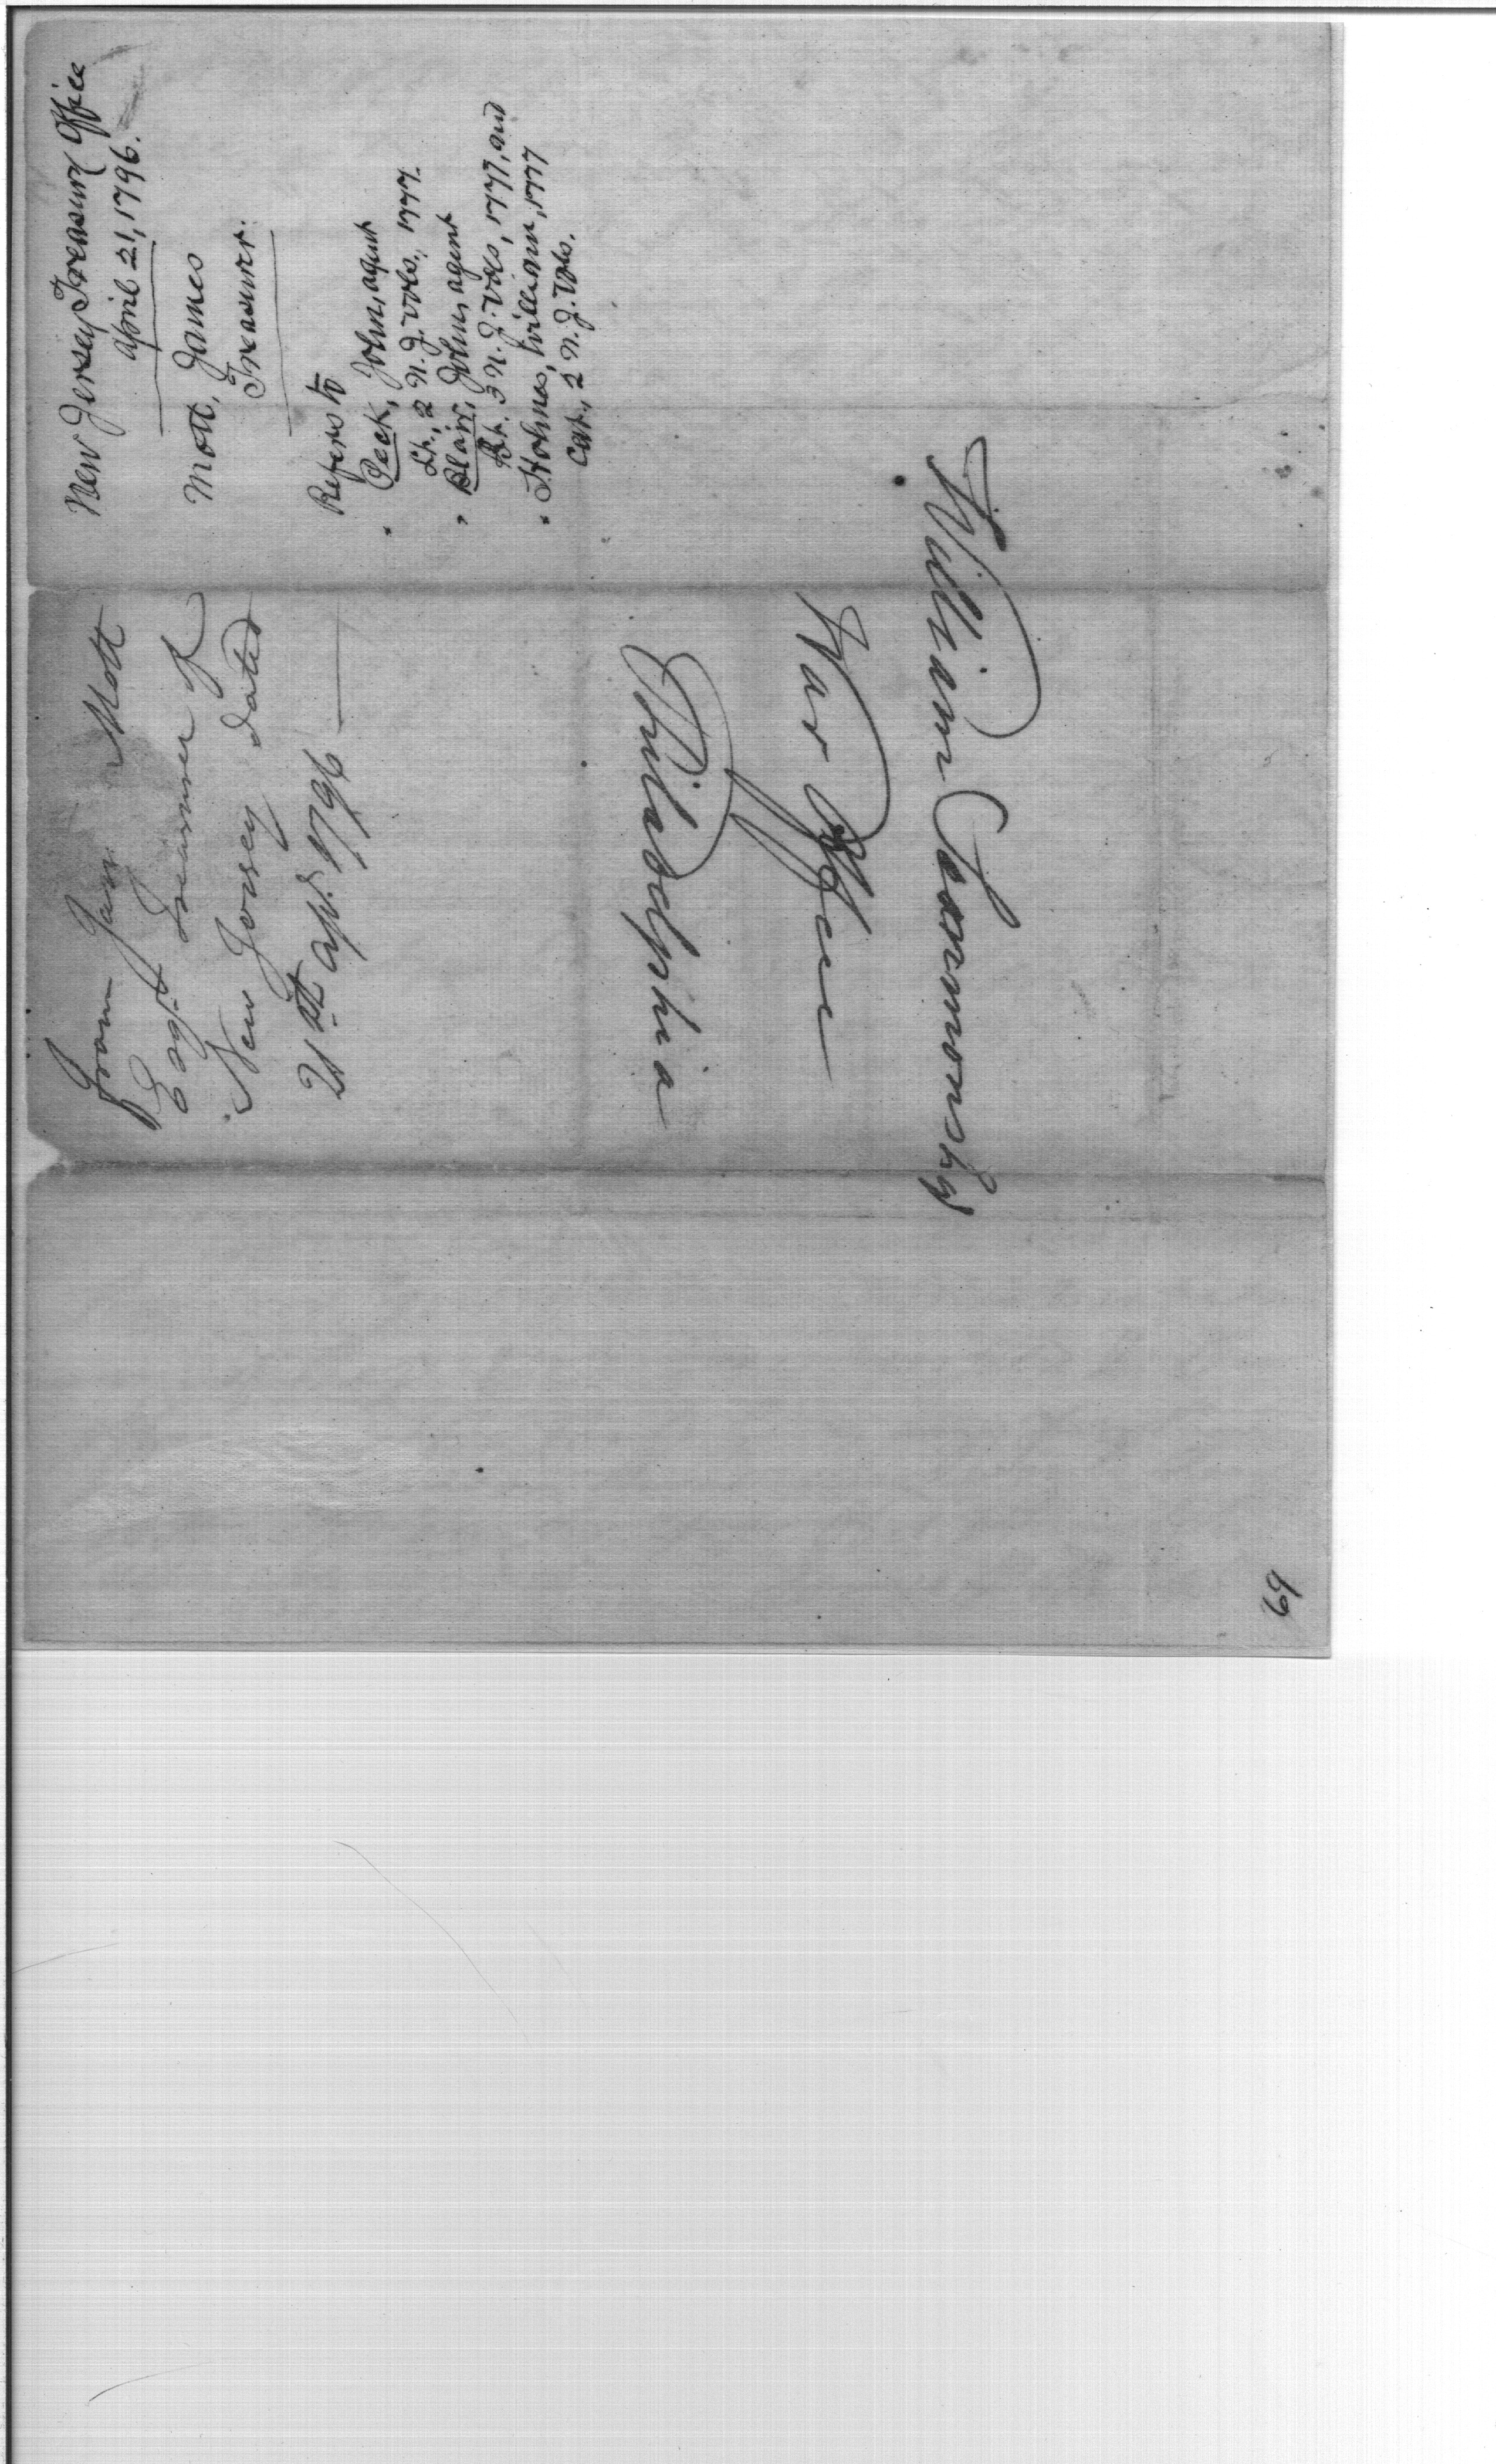 New Jersey Treasury Office
April 21, 1796.
Mott, James
Treasurer.
Refers to
Peck, John, agent
Lt., 2 N. J. Vols., 1777.
Blair, John, agent
Lt. 3 N. J. Vols, 1777, and
Holmes, William, 1777
Cat., 2 N. J. Vols.
From Jams. Mott
Esqr. Treasurer of
New Jersey dated
21st. Apl. 1796
William Simmons
War Office
Philadelphia
69